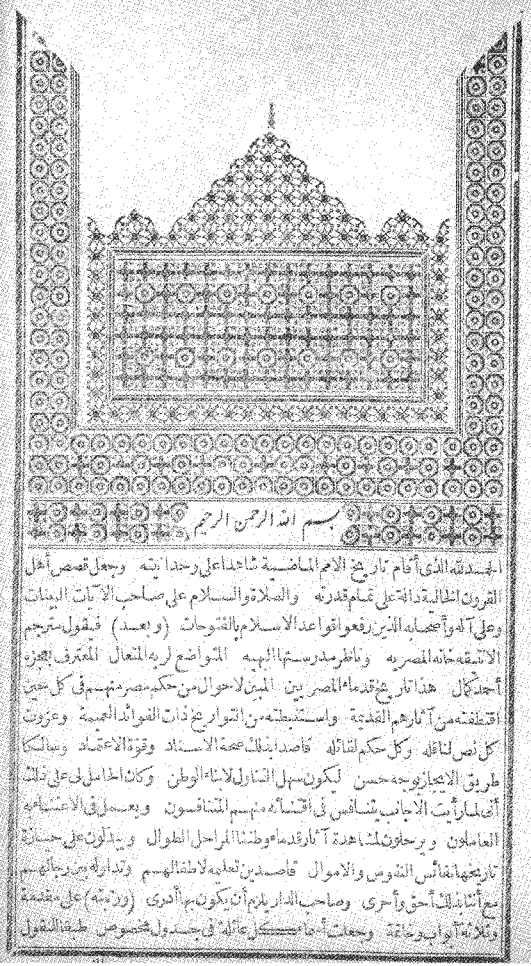 بسم الله الرحمن الرحيم
الحمد لله الذى أقام تاريخ الامم الماضية شاهدا على وحدانيته وجعل قصص أهل
القرون الخالية دالة على تمام قدرته والصلاة والسلام على صاحب الآيات البينات
وعلى آله وأصحابه الذين رفعوا قواعد الاسلام بالفتوحات (وبعد) فيقول مترجم
الانتيقه خانه المصريه وناظر مدرستها البهيه المتواضع لربه المتعال المعترف بعجزه
أحمد كمال هذا تاريخ قدماء المصريين المبين لاحوال من حكم مصر منهم فى كل حين
اقتطفته من آثارهم القديمة واستنبطته من التواريخ ذات الفوائد العميمة وعزوت
كل نص لناقله وكل حكم لقائله قاصدا بذلك صحة الاسناد وقوة الاعتماد وسالكا
طريق الايجاز بوجه حسن ليكون سهل التناول لابناء الوطن وكان الحامل لى على ذلك
أنى لما رأيت الاجانب تتنافس فى اقتنائه منهم المتنافسون ويعمل فى الاعتناء به
العاملون ويرحلون لمشاهدة آثار قدماء وطننا المراحل الطوال ويبذلون على حيازة
تاريخها نفائس النفوس والاموال قاصدين تعليمه لاطفالهم وتداوله بين رجالهم
مع أننا بذلك أحق وأحرى وصاحب الدار يلزم أن يكون بها أدرى (ورتبته) على مقدمة
وثلاثة أبواب وخاتمة وجعلت أسماء كل عائلة فى جدول مخصوص طبقا للنقول